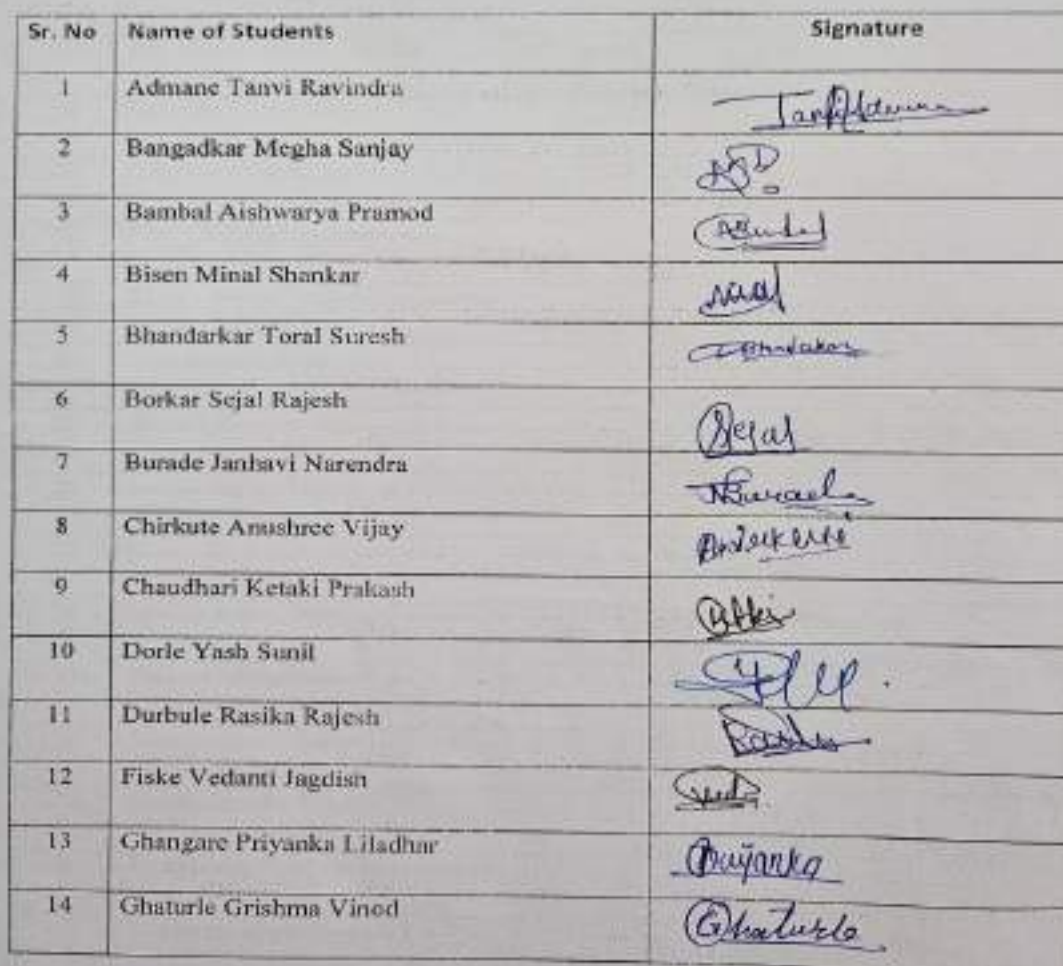 Sr. No Name of Students Signature
1 Admane Tanvi Ravindra
2 Bangadkar Megha Sanjay
3 Bambal Aishwarya Pramod
4 Bisen Minal Shankar
5 Bhandarkar Toral Suresh
6 Borkar Sejal Rajesh Sejal
7 Burade Janhavi Narendra
8 Chirkute Anushree Vijay
9 Chaudhari Ketaki Prakash
10 Dorle Yash Sunil
11 Durbule Rasika Rajesh
12 Fiske Vedanti Jagdish
13 Ghangare Priyanka Liladhar Priyanka
14 Ghaturle Grishma Vinod Ghaturle